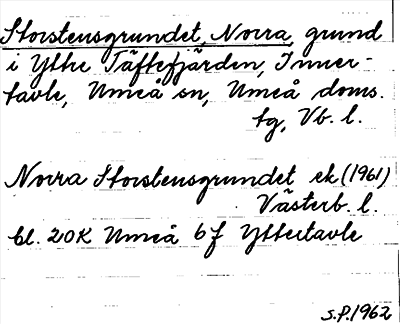 Storstensgrundet, Norra, grund
i Yttre Täftefjärden, Inner-
tavle, Umeå sn, Umeå doms.
tg, Vb. l.
Norra Storstensgrundet ek (1961)
Västerb. l.
bl. 20K Umeå 6f Yttertavle
S.P. 1962